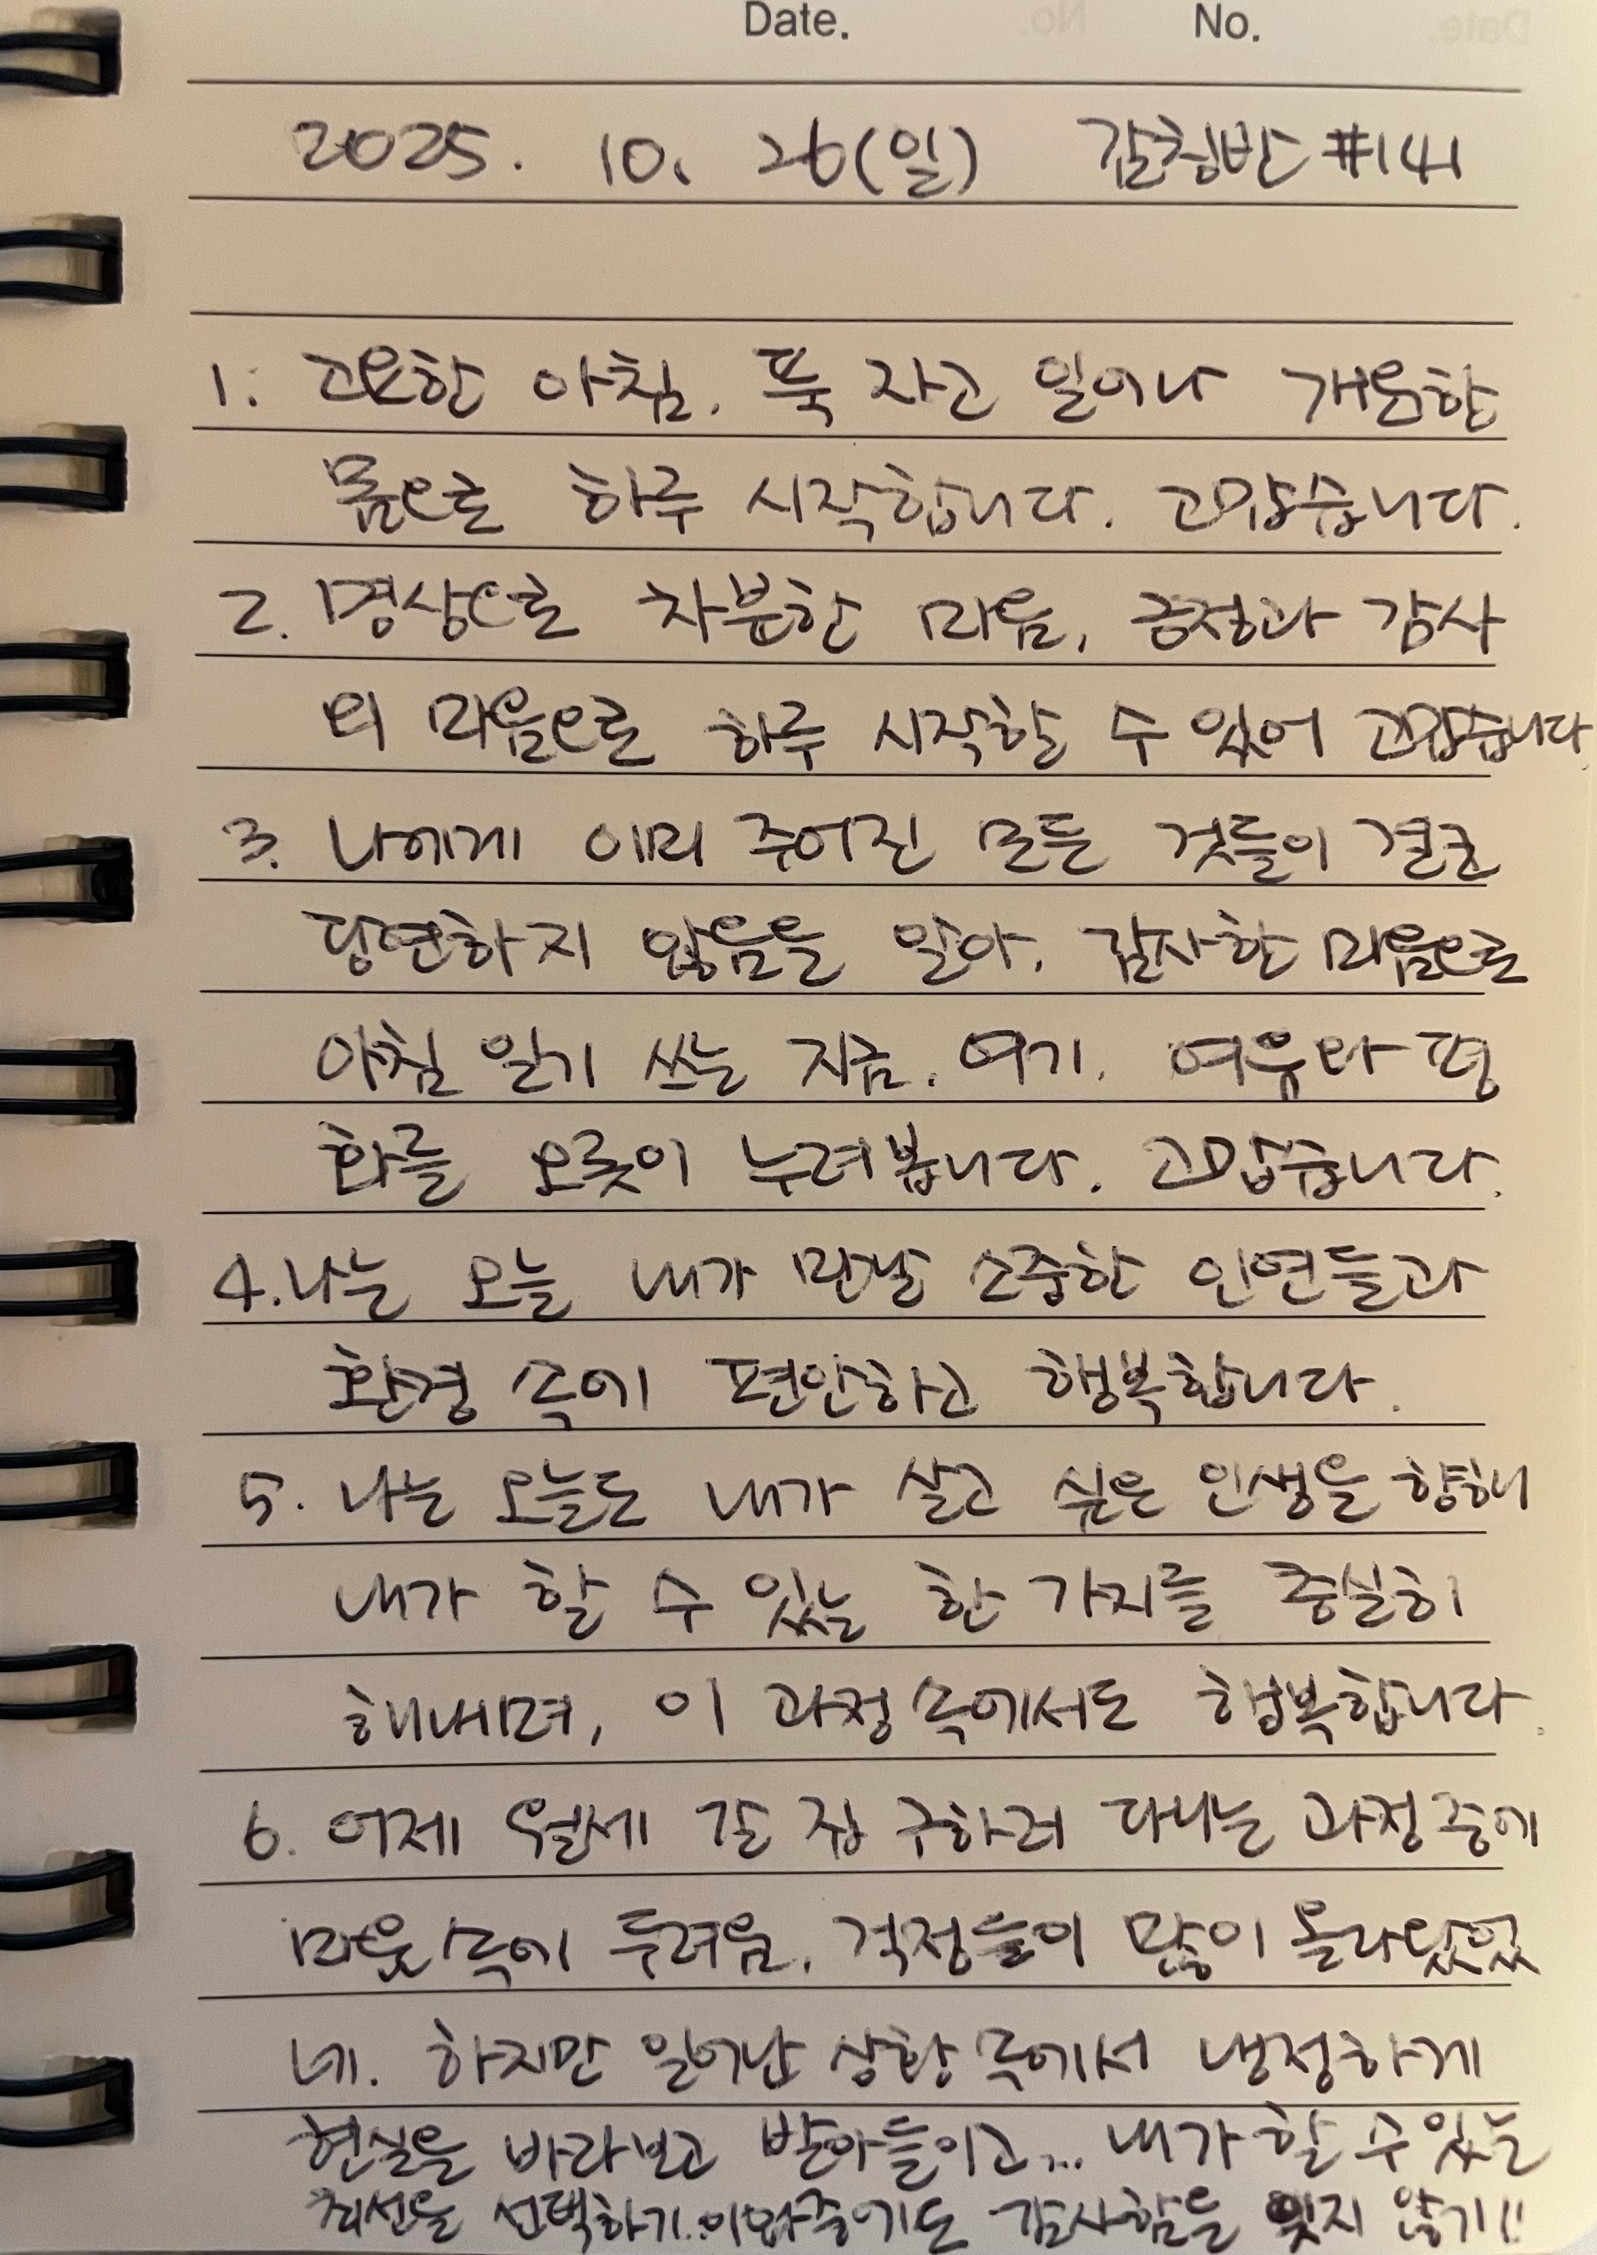 Date. No.
2025. 10. 26(일) 감칭반 #141
1. 고요한 아침. 푹 자고 일어나 개운한
몸으로 하루 시작합니다. 고맙습니다.
2. 명상으로 차분한 마음, 긍정과 감사
의 마음으로 하루 시작할 수 있어 고맙습니다.
3. 나에게 이미 주어진 모든 것들이 결코
당연하지 않음을 알아. 감사한 마음으로
아침 일기 쓰는 지금. 여기. 여유와 평
화를 오롯이 누려봅니다. 고맙습니다.
4. 나는 오늘 내가 만날 소중한 인연들과
환경 속에 편안하고 행복합니다.
5. 나는 오늘도 내가 살고 싶은 인생을 향해
내가 할 수 있는 한 가지를 충실히
해내며, 이 과정 속에서도 행복합니다.
6. 어제 월세 갈 집 구하러 다니는 과정 중에
마음 속에 두려움. 걱정들이 많이 올라왔었
네. 하지만 일어난 상황 속에서 냉정하게
현실을 바라보고 받아들이고... 내가 할 수 있는
최선을 선택하기.. 이와중에도 감사함을 잊지 않기!!